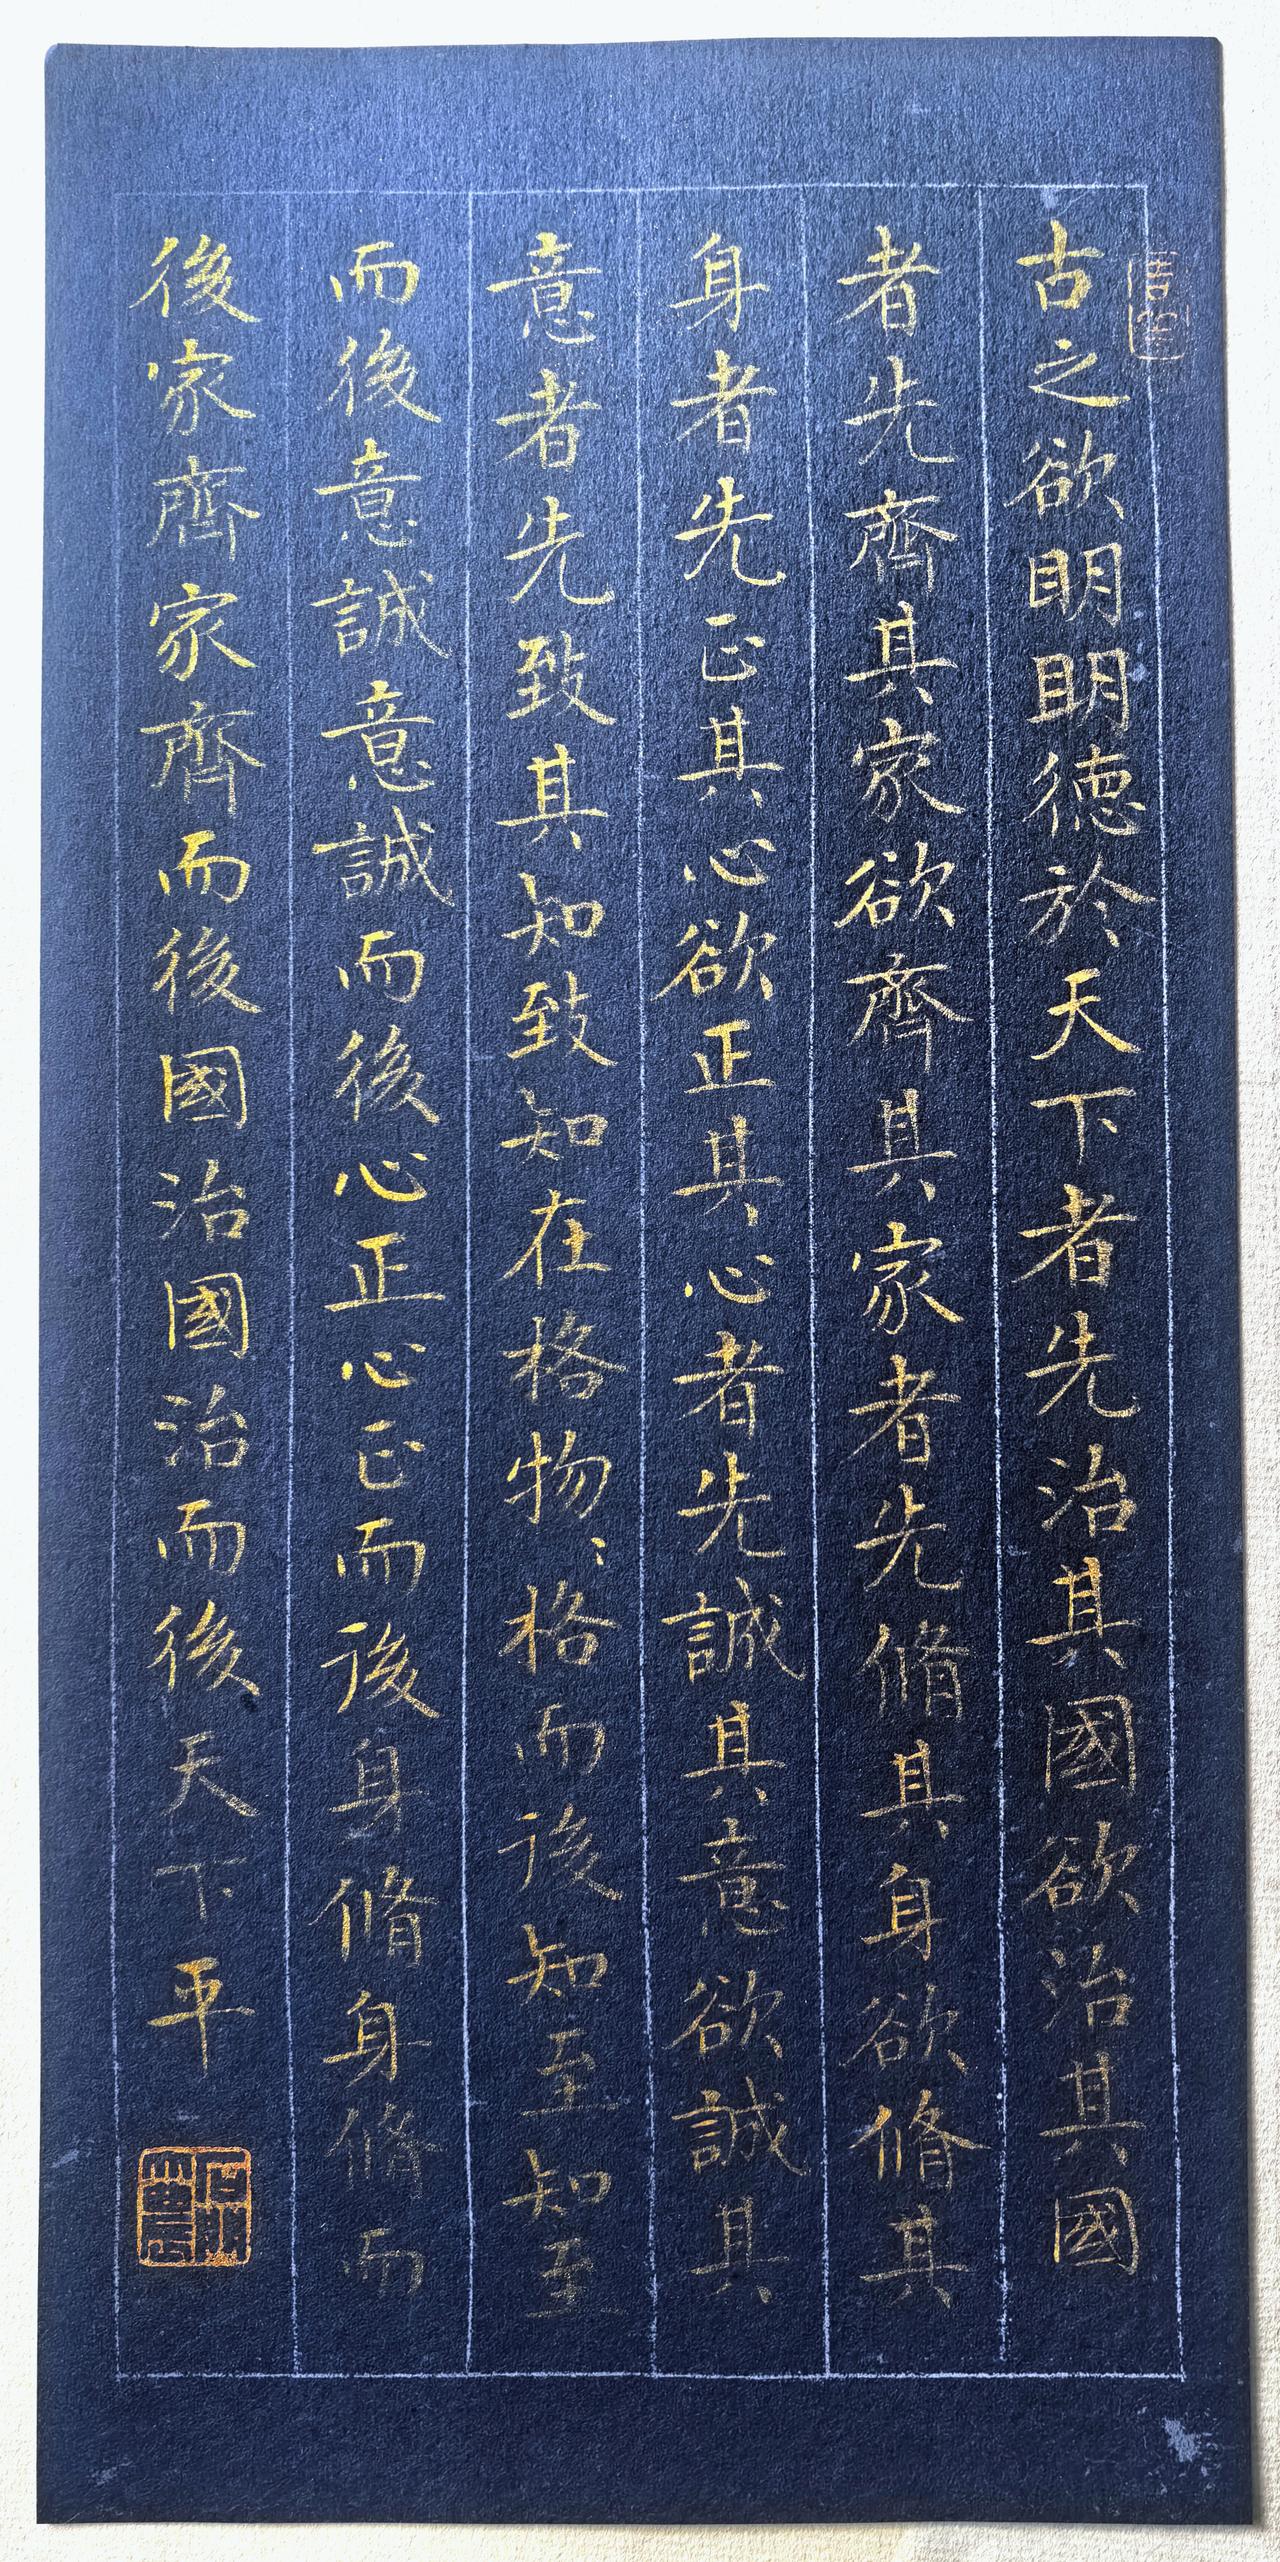 古之欲明明德於天下者先治其國欲治其國
者先齊其家欲齊其家者先脩其身欲脩其
身者先正其心欲正其心者先誠其意欲誠其
意者先致其知致知在格物、格而後知至知至
而後意誠意誠而後心正心正而後身脩身脩而
後家齊家齊而後國治國治而後天下平